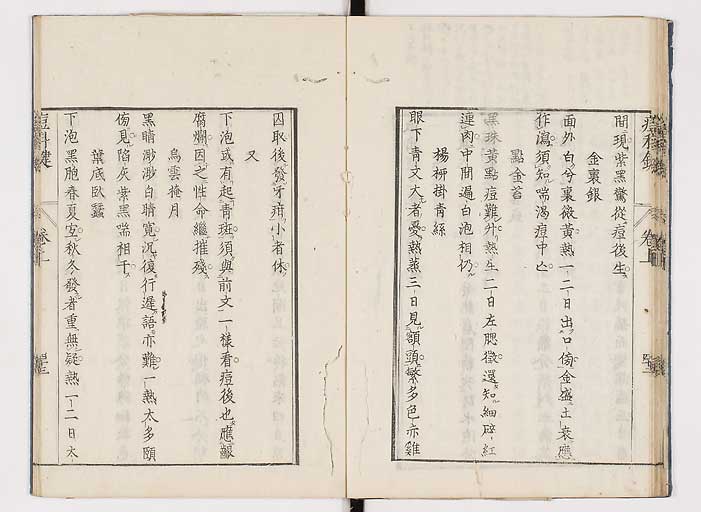 間現紫黑驚從痘後生
金裹銀
面外白兮裏徴黃熱一二日出口倚金盛土衰應
作瀉須知喘渴痘中亡
點金苔
黑珠黃點痘難外熱生二日左腮徵還知細碎紅
連肉中間遍白泡相仍
楊栁掛青絲
眼下青文大者憂熱蒸三日見額頭繁多色亦雞
卷上
囚取後發牙疳小者休
又
下泡或有起青斑須與前文一樣看痘後也應齦
腐爛因之性命繼摧殘
烏雲掩月
黑睛渺渺白睛寬沉復行遲語亦難一熱太多頤
傍見陷灰紫黑喘相干
葉底臥蠶
下泡黑胞春夏空秋冬發者重無疑熱一二日太